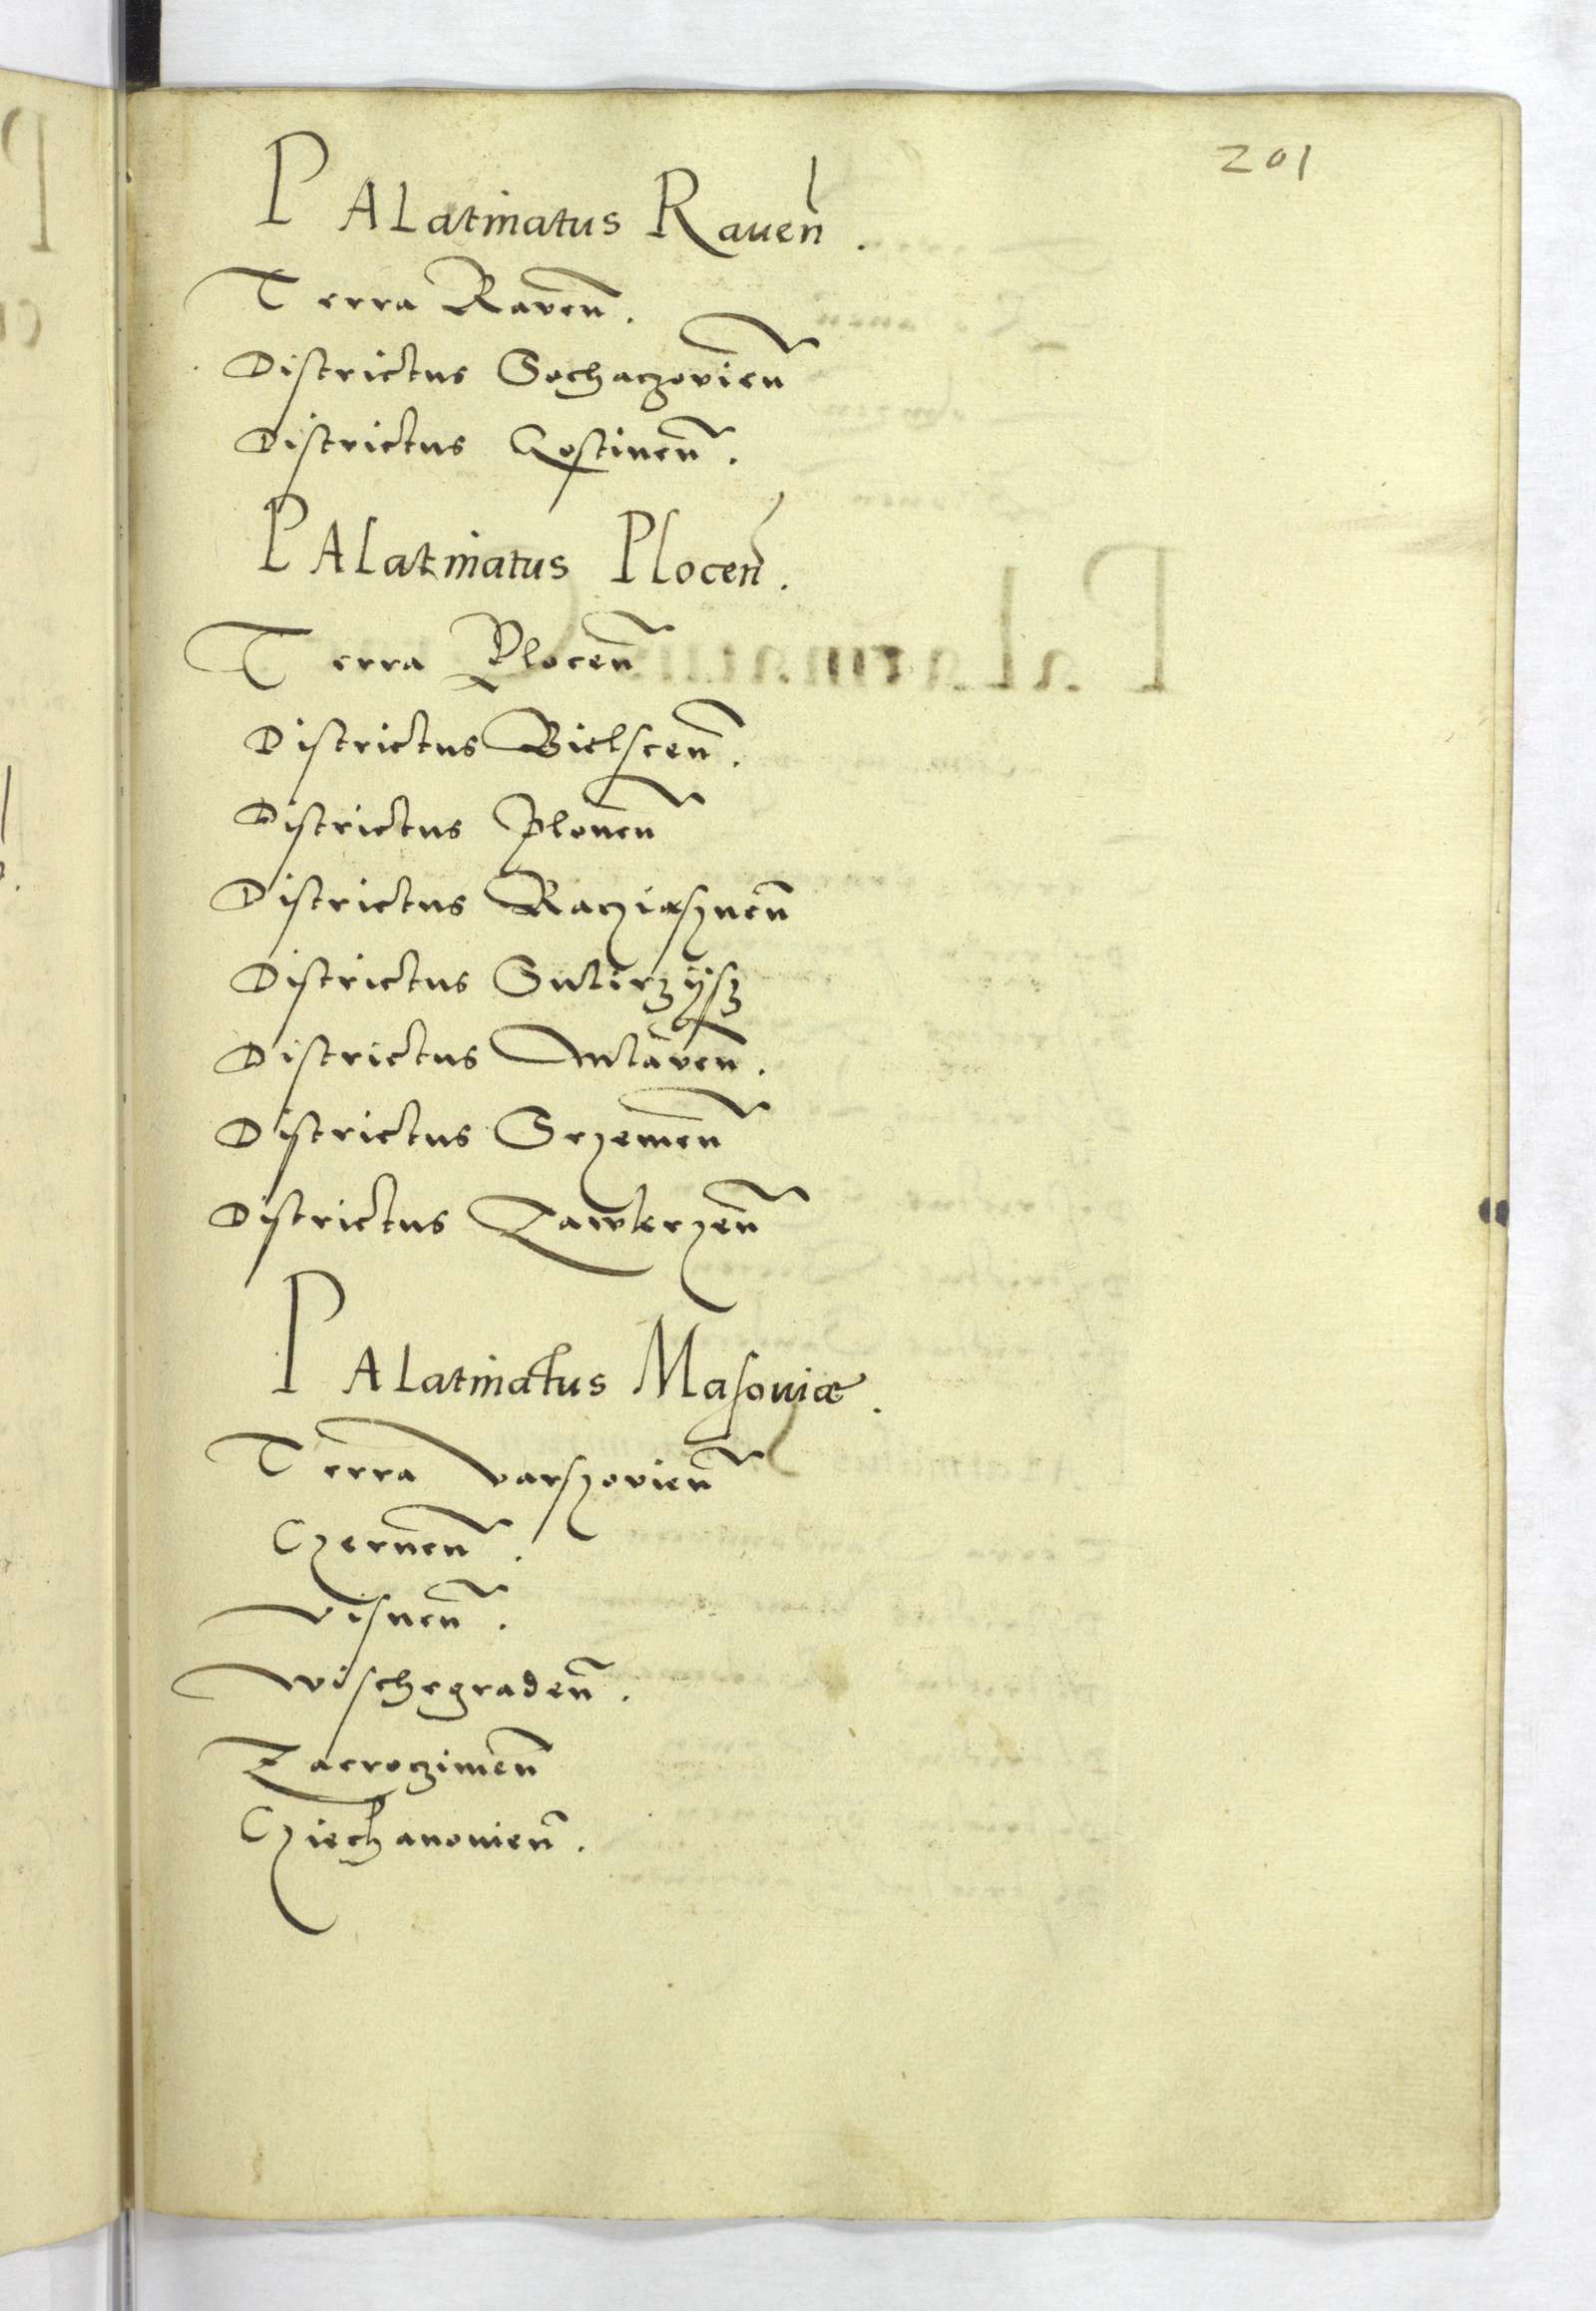 201
PALatinatus Raueñ.
Terra Raveñ.
Districtus Sochaczovieñ
Districtus Gostineñ.
PALatinatus Ploceñ.
Terra Ploceñ
Districtus Bielsceñ.
Districtus Ploneñ
Districtus Racziaszneñ
Districtus
Districtus Mlaveñ.
Districtus Srzemeñ
Districtus Zawkrzeñ
PALatinatus Masouiæ.
Terra Varszovieñ
Czerneñ.
Visneñ.
Wischegradeñ.
Zacroczimeñ
Cziechanouieñ.